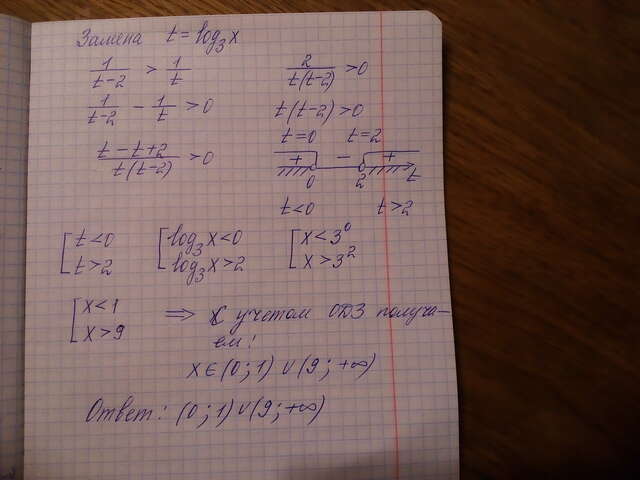 Замена t = log₃x
1/(t-2) > 1/t
1/(t-2) - 1/t > 0
(t-t+2)/(t(t-2)) > 0
2/(t(t-2)) > 0
t(t-2) > 0
t=0 t=2
+ - +
0 2 t
t<0 t>2
[ t<0 [ log₃x<0 [ x<3⁰
t>2 log₃x>2 x>3²
[ x<1 ⇒ с учетом ОДЗ получа-
x>9 ем:
x∈(0;1)∪(9;+∞)
Ответ: (0;1)∪(9;+∞)